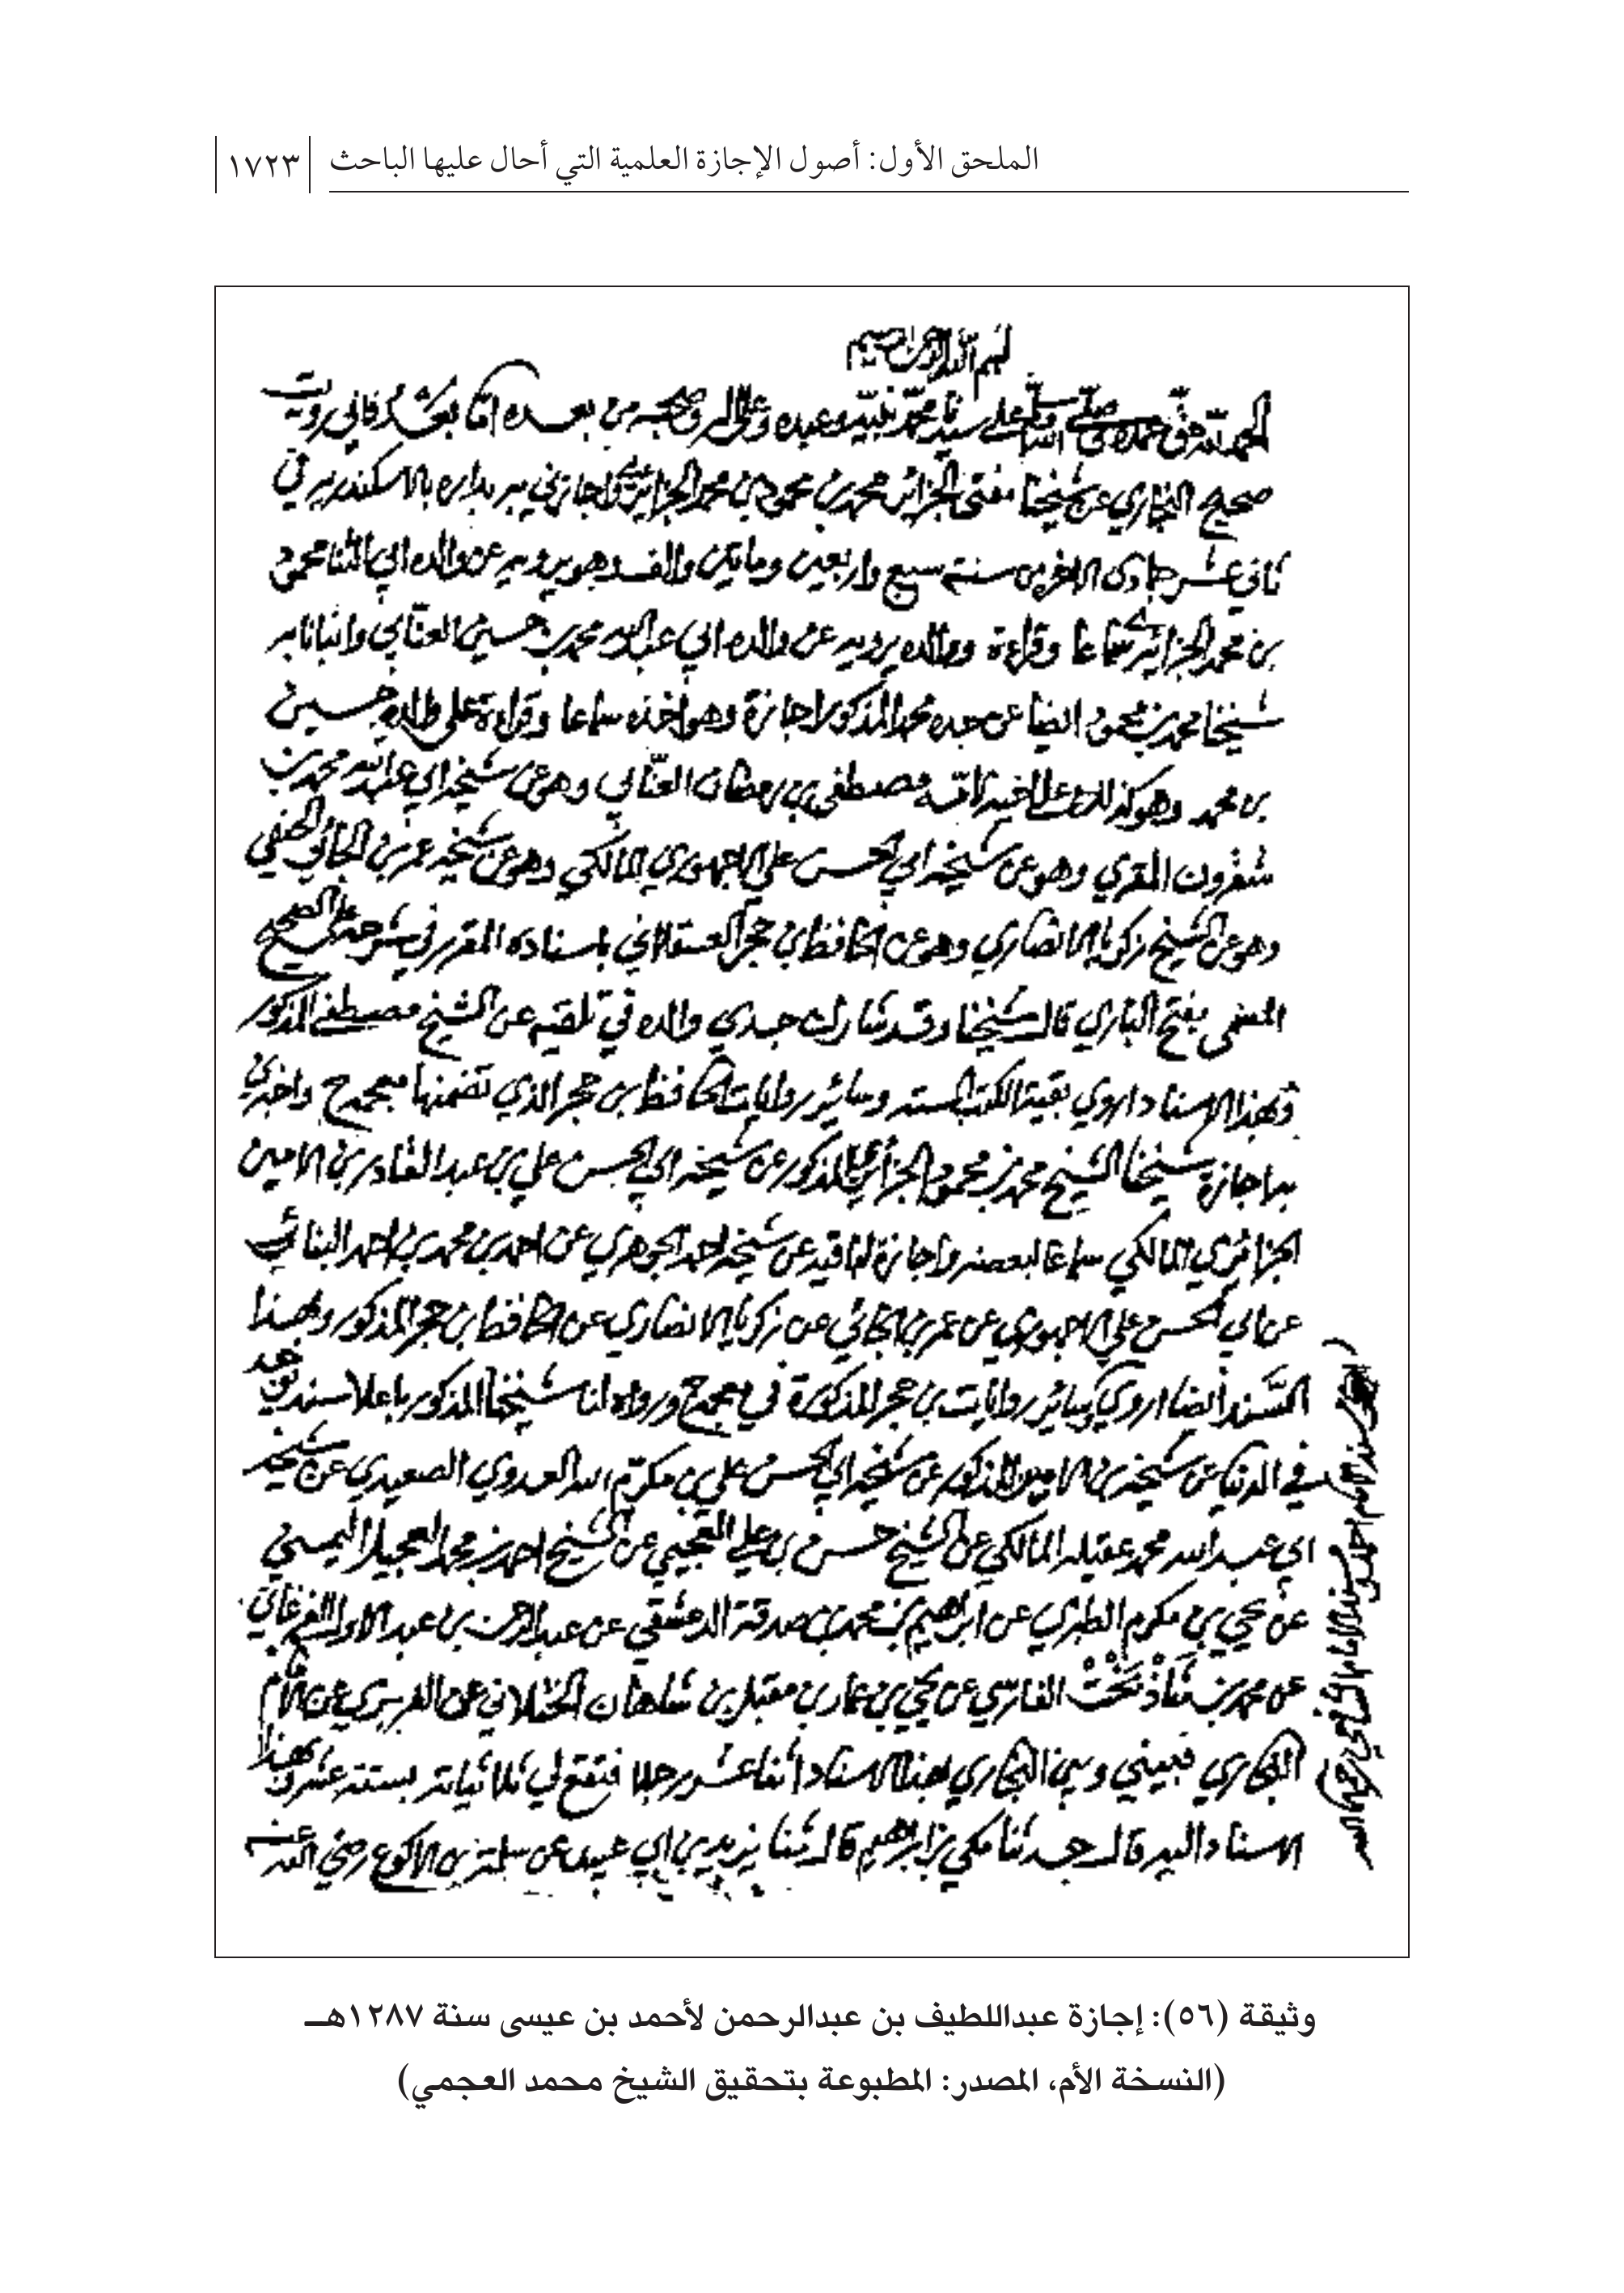 الملحق الأول: أصول الإجازة العلمية التي أحال عليها الباحث
١٧٢٣
بسم الله الرحمن الرحيم
الحمد لله حق حمده وصلى الله وسلم على سيدنا محمد نبيه وعبده وعلى آله وصحبه من بعده اما بعد فاني رويت
صحيح البخاري عن شيخنا مفتي الجزائر محمد بن محمود بن محمد الجزائري اجازني به بداره بالاسكندريه في
ثاني عشر جمادى الاخر من سنة سبع واربعين ومايتين والف وهو يرويه عن والده ابي الثنا محمود
بن محمد الجزائري سماعا وقراءة ووالده يرويه عن والده ابي عبد الله محمد بن حسين العنابي وانبانا به
شيخنا محمد بن محمود ايضا عن جده محمد المذكور اجازة وهو اخذه سماعا وقراءة على والده حسين
بن محمد وهو كذلك على اخيه لامه مصطفى بن رمضان العنابي وهو عن شيخه ابي عبد الله محمد بن
شقرون المقري وهو عن شيخه ابي الحسن علي الاجهوري المالكي وهو عن شيخه عمر بن الجائي الحنفي
وهو عن الشيخ زكريا الانصاري وهو عن الحافظ بن حجر العسقلاني باسناده المقرر في شرحه على الصحيح
المسمى بفتح الباري قال شيخنا وقد شارك جدي والده في تلقيه عن الشيخ مصطفى المذكور
وبهذا الاسناد اروي بقية الكتب السته وسائر روايات الحافظ بن حجر الذي تضمنها معجمه ح واخبرني
به اجازة شيخنا الشيخ محمد بن محمود الجزائري المذكور عن شيخه ابي الحسن علي بن عبد القادر بن الامين
الجزائري المالكي سماعا لبعضه واجازة لباقيه عن شيخه احمد الجوهري عن احمد بن محمد بن احمد البنائي
عن ابي الحسن علي الاجهوري عن عمر بن الجائي عن زكريا الانصاري عن الحافظ بن حجر المذكور وبهذا
السند ايضا اروي سائر روايات بن حجر المذكورة في معجمه ح ورواه لنا شيخنا المذكور باعلا سند يوجد
في الدنيا عن شيخه بن الامين المذكور عن شيخه ابي الحسن علي بن مكرم الله العدوي الصعيدي عن شيخه
ابي عبد الله محمد عقيله المالكي عن الشيخ حسن بن علي العجيمي عن الشيخ احمد بن محمد العجيل اليمني
عن يحيى بن مكرم الطبري عن ابراهيم بن محمد بن صدقة الدمشقي عن عبد الرحمن بن عبد الاول الفرغاني
عن محمد بن شاذبخت الفارسي عن يحيى بن عمار بن مقبل بن شاهان الختلاني عن الفربري عن الامام
البخاري فبيني وبين البخاري بهذا الاسناد اثنا عشر رجلا فتقع لي ثلاثياته بستة عشر بهذا
الاسناد اليه قال حدثنا مكي بن ابراهيم قال ثنا يزيد بن ابي عبيد عن سلمة بن الاكوع رضي الله عنه
سند الامام احمد
سند الامام الشافعي رحمه الله
وثيقة (٥٦): إجازة عبداللطيف بن عبدالرحمن لأحمد بن عيسى سنة ١٢٨٧هـ
(النسخة الأم، المصدر: المطبوعة بتحقيق الشيخ محمد العجمي)